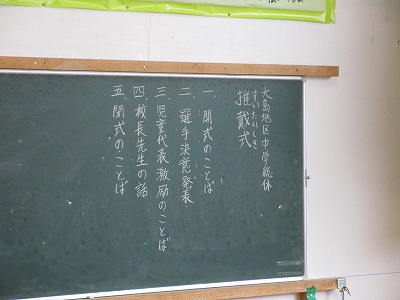 大島地区中学総体
すいたいしき
推戴式
一、開式のことば
二、選手決意発表
三、児童代表激励のことば
四、校長先生の話
五、閉式のことば